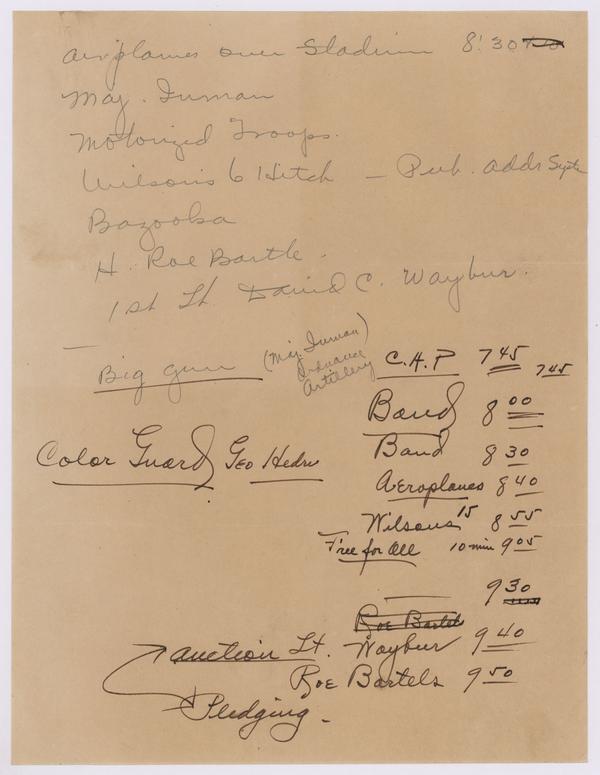 Airplanes over Stadium 8:30
Maj. Inman
Motorized Troops.
Wilson's 6 Hitch — Pub. addr System
Bazooba
H. Roe Bartle.
1st Lt David C. Waybur.
Big gun (Maj. Inman)
Ordnance
Artillery
C.A.P 7 45 7 45
Band 8 00
Band 8 30
Color Guard Geo Hedri
Aeroplanes 8 40
Wilsons 15 8 55
Free for All 10 min 9 05
9 30
Roe Bartel
auction Lt. Waybur 9 40
Roe Bartels 9 50
Pledging -